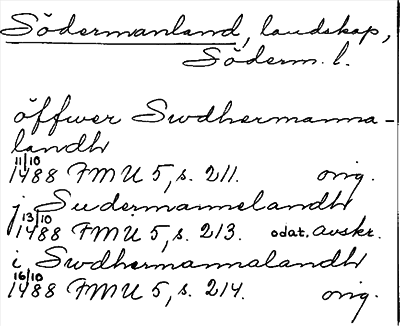 Södermanland, landskap,
Söderm. l.
öffwer Swdhermanna-
landh
11/10
1488 FMU 5, s. 211. orig.
j Sudermannelandh
13/10
1488 FMU 5, s. 213. odat. avskr.
i Swdhermannalandh
16/10
1488 FMU 5, s. 214. orig.